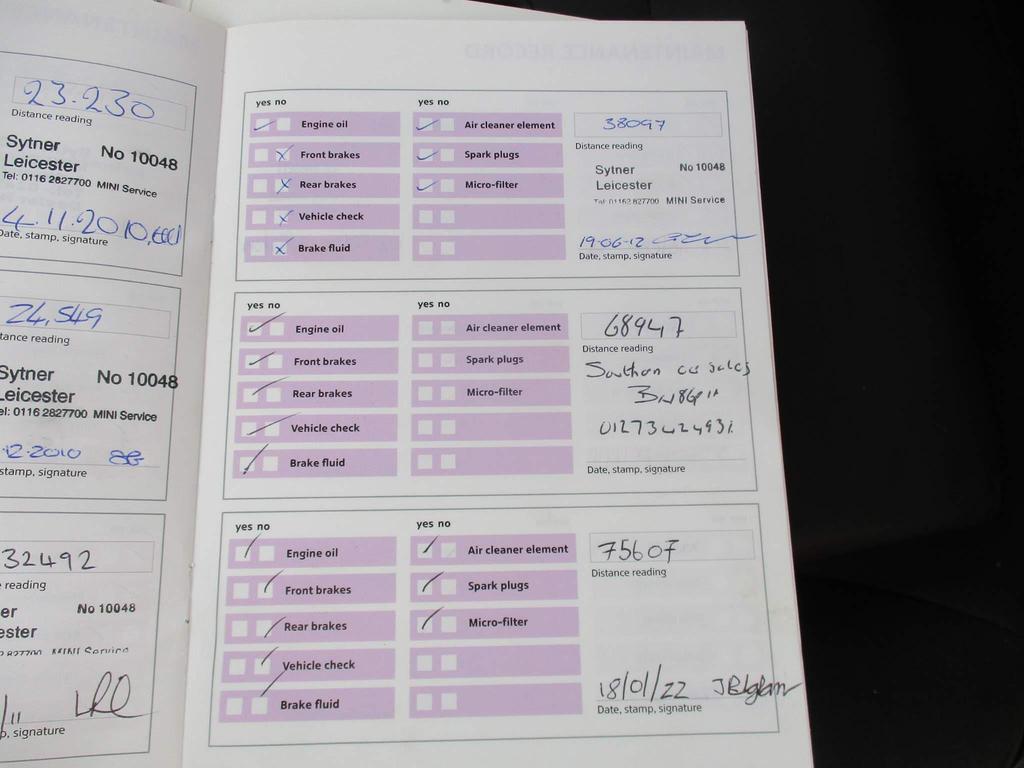 23.230
Distance reading
Sytner No 10048
Leicester
Tel: 0116 2827700 MINI Service
4.11.2010
Date, stamp, signature
24,549
tance reading
Sytner No 10048
Leicester
el: 0116 2827700 MINI Service
12.2010
stamp, signature
32492
reading
er No 10048
ester
MINI Service
/11
p, signature
MAINTENANCE RECORD
yes no yes no
Engine oil Air cleaner element 38097
Front brakes Spark plugs Distance reading
Rear brakes Micro-filter Sytner No 10048
Leicester
Tel: 01162 827700 MINI Service
Vehicle check
Brake fluid 19-06-12
Date, stamp, signature
yes no yes no
Engine oil Air cleaner element 68947
Distance reading
Front brakes Spark plugs Southon car sales
Rear brakes Micro-filter
Vehicle check
Brake fluid Date, stamp, signature
yes no yes no
Engine oil Air cleaner element 75607
Distance reading
Front brakes Spark plugs
Rear brakes Micro-filter
Vehicle check
Brake fluid 18/01/22
Date, stamp, signature